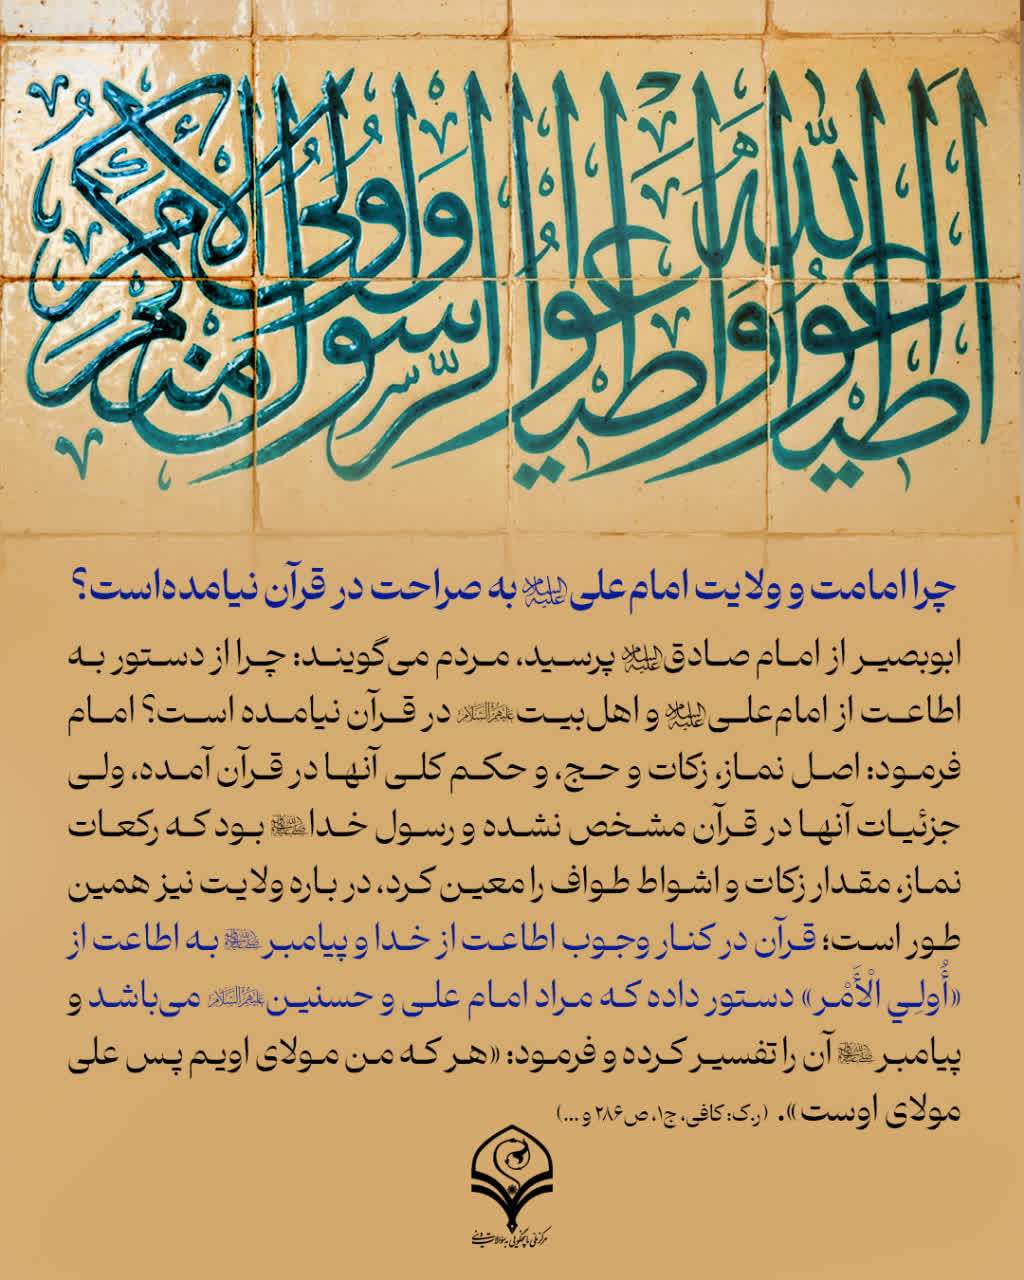 اطیعوا الله و اطیعوا الرسول و اولی الامر منکم
چرا امامت و ولایت امام‌علی علیه‌السلام به صراحت در قرآن نیامده‌است؟
ابوبصیر از امام صادق علیه‌السلام پرسید، مردم می‌گویند: چرا از دستور به
اطاعت از امام‌علی علیه‌السلام و اهل‌بیت علیهم‌السلام در قرآن نیامده است؟ امام
فرمود: اصل نماز، زکات و حج، و حکم کلی آنها در قرآن آمده، ولی
جزئیات آنها در قرآن مشخص نشده و رسول خدا ﷺ بود که رکعات
نماز، مقدار زکات و اشواط طواف را معین کرد، در باره ولایت نیز همین
طور است؛ قرآن در کنار وجوب اطاعت از خدا و پیامبر ﷺ به اطاعت از
«أُولِي الْأَمْر» دستور داده که مراد امام علی و حسنین علیهم‌السلام می‌باشد و
پیامبر ﷺ آن را تفسیر کرده و فرمود: «هر که من مولای اویم پس علی
مولای اوست». (ر.ک: کافی، ج۱، ص۲۸۶ و ...)
مرکز ملی پاسخگویی به سؤالات دینی